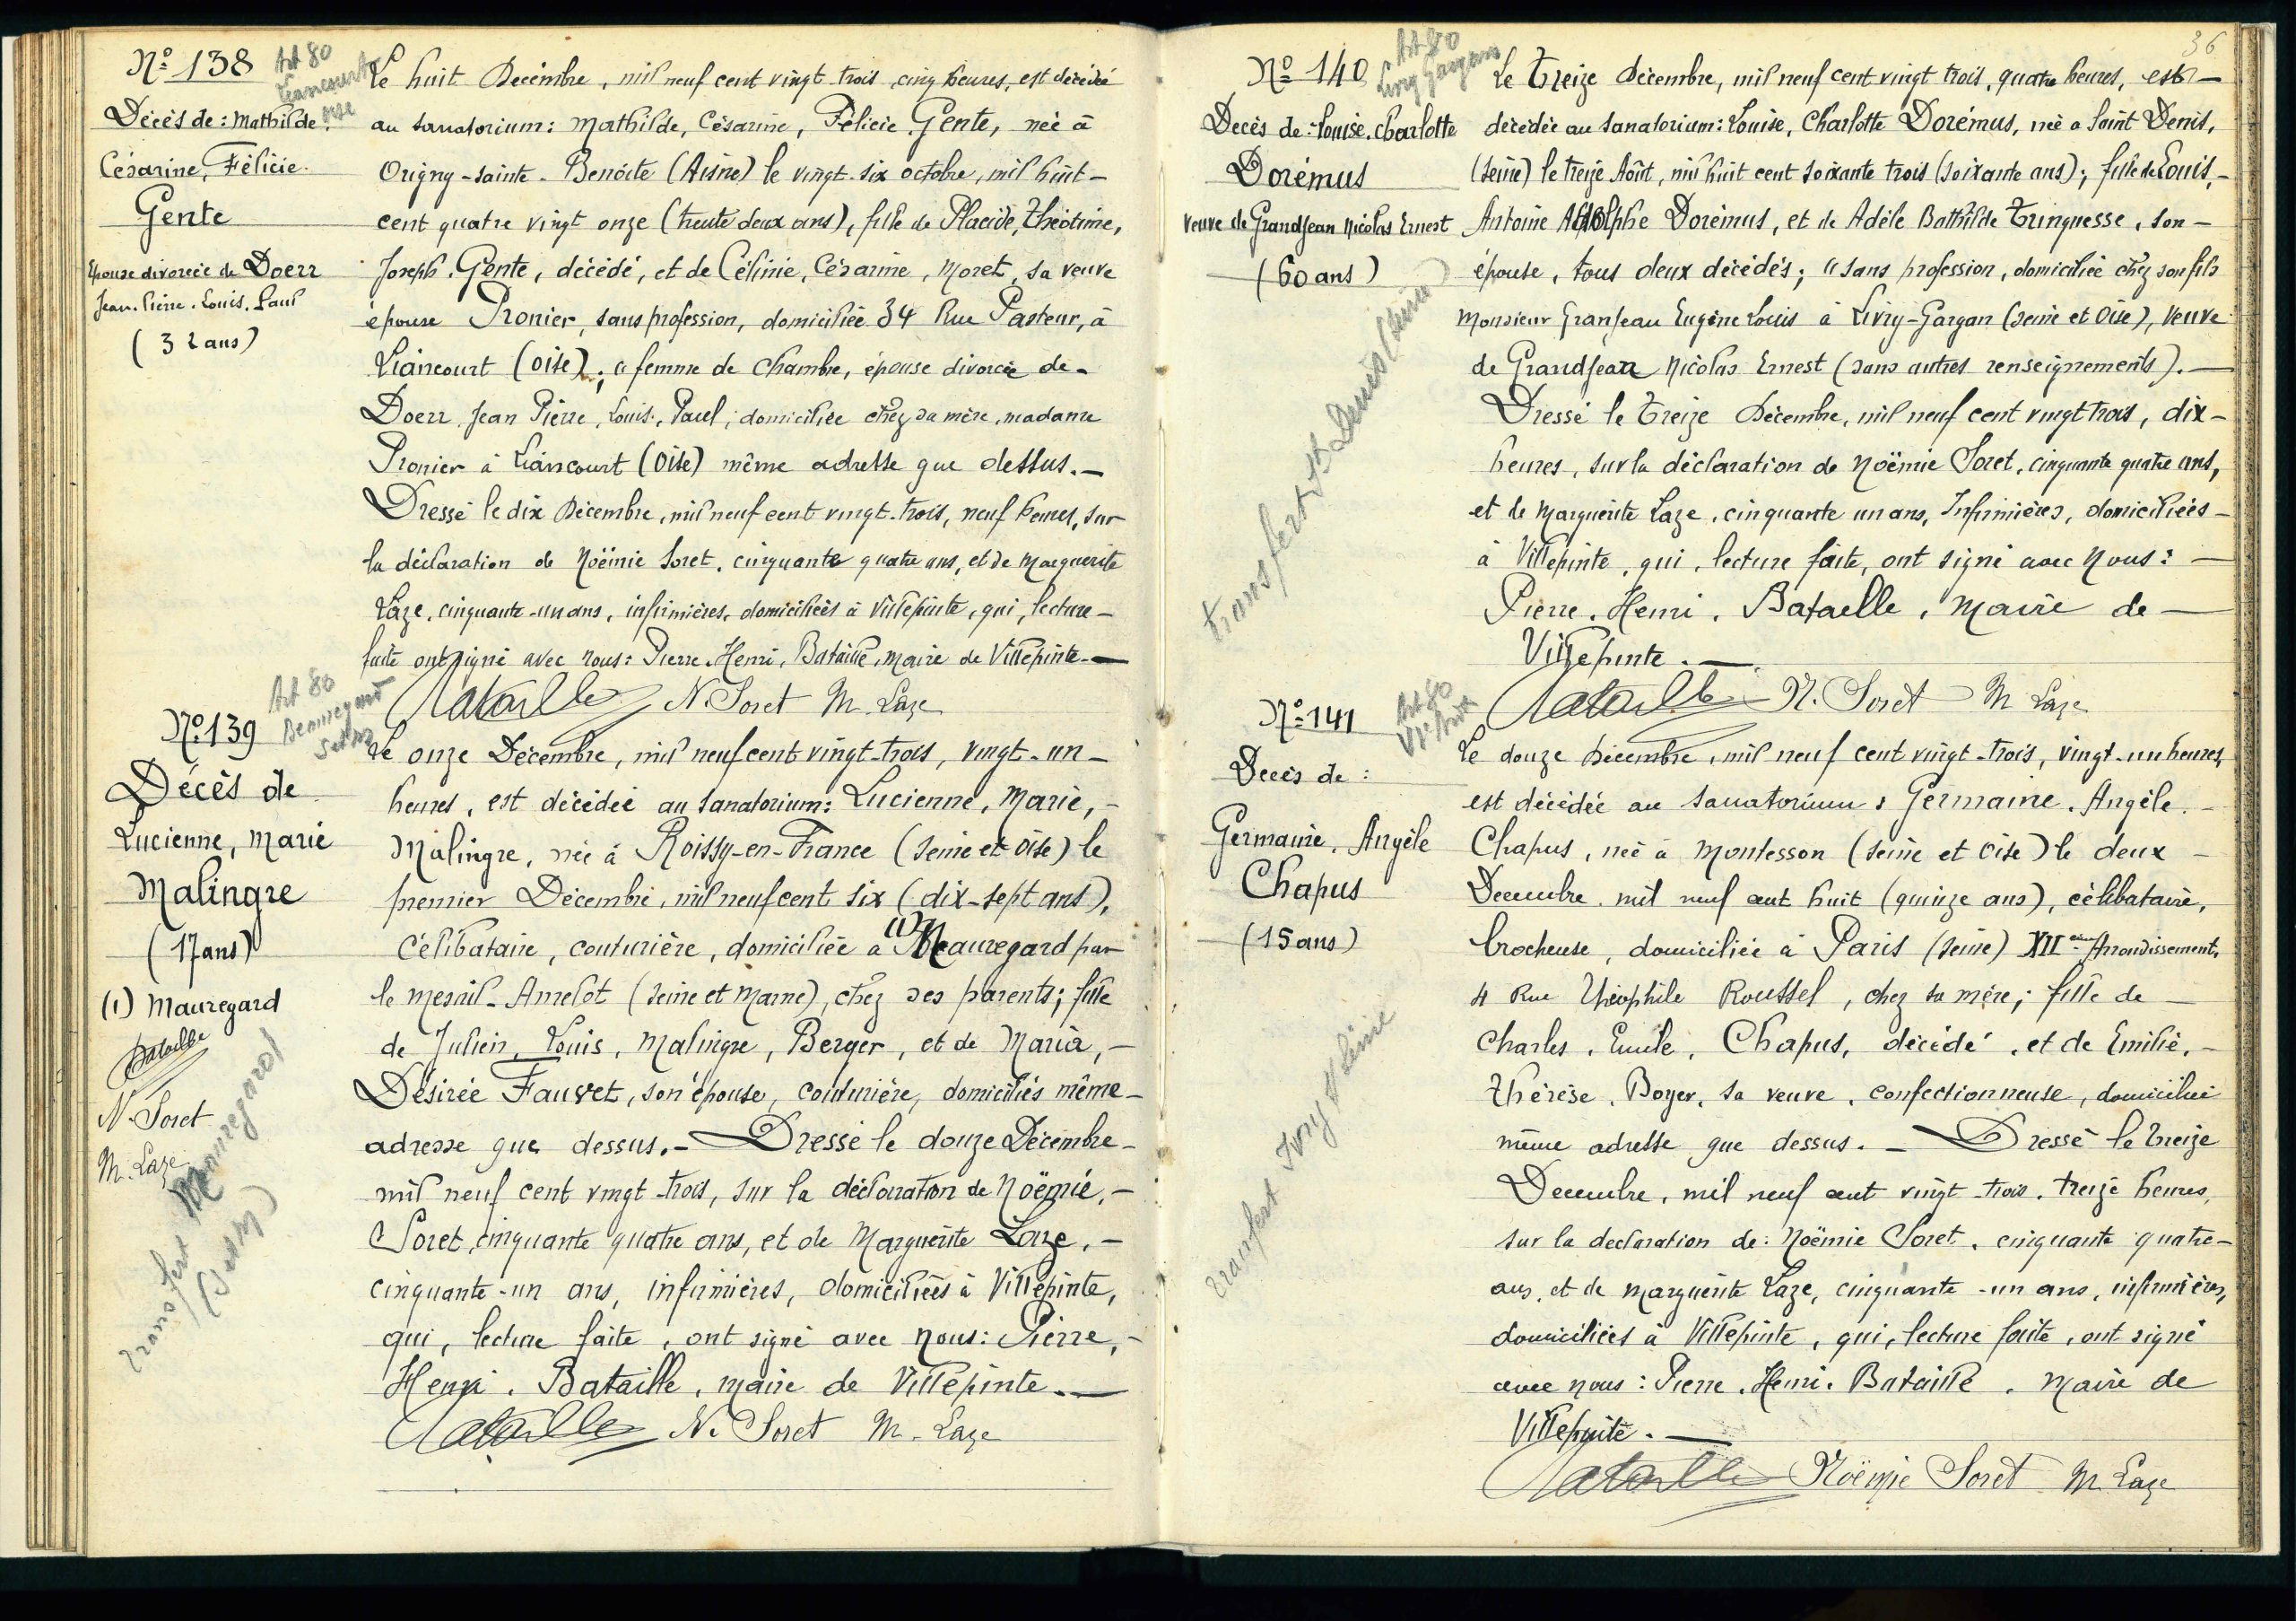 Nº 138
Art 80
Liancourt
Oise
Décès de : Mathilde,
Césarine, Félicie.
Gente
Epouse divorcée de Doerr
Jean. Pierre. Louis. Paul
(32 ans)
Le huit Décembre, mil neuf cent vingt trois, cinq heures, est décédée
au Sanatorium : Mathilde, Césarine, Félicie Gente, née à
Origny-Sainte-Benôite (Aisne) le vingt-six octobre, mil huit-
cent quatre vingt onze (trente deux ans), fille de Placide, Théotime,
Joseph. Gente, décédé, et de Célinie, Césarine, Moret, sa veuve
épouse Pronier, sans profession, domiciliée 34 Rue Pasteur, à
Liancourt (Oise) ; " femme de chambre, épouse divorcée de-
Doerr, Jean Pierre, Louis, Paul, domiciliée chez sa mère, madame
Pronier à Liancourt (Oise) même adresse que dessus.—
Dressé le dix Décembre, mil neuf cent vingt-trois, neuf heures, sur
la déclaration de Noëmie Soret, cinquante quatre ans, et de Marguerite
Laze, cinquante-un ans, infirmières, domiciliées à Villepinte, qui, lecture-
faite ont signé avec nous : Pierre. Henri, Bataille, maire de Villepinte.—
Bataille N. Soret M. Laze
Nº 139
Art 80
Beauregard
S et M
Décès de
Lucienne, Marie
Malingre
(17 ans)
(1) Mauregard
Bataille
N. Soret
M. Laze
Transfert Mauregard
(S et M)
Le onze Décembre, mil neuf cent vingt-trois, vingt-un-
heures, est décédée au Sanatorium : Lucienne, Marie,-
Malingre, née à Roissy-en-France (Seine et Oise) le
premier Décembre, mil neuf cent six (dix-sept ans),
Célibataire, couturière, domiciliée à (1) Meauregard par
le Mesnil-Amelot (Seine et Marne), chez ses parents ; fille
de Julien, Louis, Malingre, Berger, et de Maria,-
Désirée Fauvet, son épouse, couturière, domiciliés même-
adresse que dessus.- Dressé le douze Décembre-
mil neuf cent vingt-trois, sur la déclaration de Noëmie,-
Soret, cinquante quatre ans, et de Marguerite Laze,-
cinquante-un ans, infirmières, domiciliées à Villepinte,
qui, lecture faite, ont signé avec nous : Pierre,-
Henri. Bataille, maire de Villepinte.—
Bataille N. Soret M. Laze
36
Nº 140
Art 80
Livry Gargan
Decès de : Louise. Charlotte
Dorémus
Veuve de Grandjean Nicolas Ernest
(60 ans)
transfert St Denis (Seine)
Le Treize Décembre, mil neuf cent vingt trois, quatre heures, est-
décédée au Sanatorium : Louise, Charlotte Dorémus, née à Saint Denis,
(Seine) le treize Août, mil huit cent soixante trois (soixante ans) ; fille de Louis,-
Antoine Adolphe Dorémus, et de Adèle Bathilde Tringuesse, son-
épouse, tous deux décédés ; " sans profession, domiciliée chez son fils
Monsieur Granjeau Eugène Louis à Livry-Gargan (Seine et Oise), Veuve
de Grandjean Nicolas Ernest (sans autres renseignements).—
Dressé le Treize Décembre, mil neuf cent vingt trois, dix-
heures, sur la déclaration de Noëmie Soret, cinquante quatre ans,
et de Marguerite Laze, cinquante un ans, Infirmières, domiciliées-
à Villepinte, qui, lecture faite, ont signé avec Nous : —
Pierre. Henri. Bataille, Maire de —
Villepinte.—
Bataille N. Soret M Laze
Nº 141
Art 80
Decès de :
Germaine, Angèle
Chapus
(15 ans)
Transfert Ivry s/ Seine
Le douze Décembre, mil neuf cent vingt-trois, vingt-un heures,
est décédée au Sanatorium : Germaine. Angèle.-
Chapus, née à Montesson (Seine et Oise) le deux -
Decembre mil neuf cent huit (quinze ans), célibataire,
brocheuse, domiciliée à Paris (Seine) XII ème Arrondissement,
4 Rue Théophile Roussel, chez sa mère ; fille de —
Charles, Emile, Chapus, décédé, et de Emilie,-
Thérèse, Boyer, sa veuve, confectionneuse, domiciliée
même adresse que dessus.— Dressé le treize
Decembre, mil neuf cent vingt-trois, treize heures,
sur la declaration de : Noëmie Soret, cinquante quatre-
ans, et de Marguerite Laze, cinquante-un ans, infirmières,
domiciliées à Villepinte, qui, lecture faite, ont signé
avec nous : Pierre. Henri. Bataille, Maire de
Villepinte.—
Bataille Noëmie Soret M. Laze